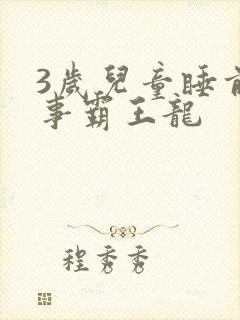 3歲兒童睡前
事霸王龍
程秀秀